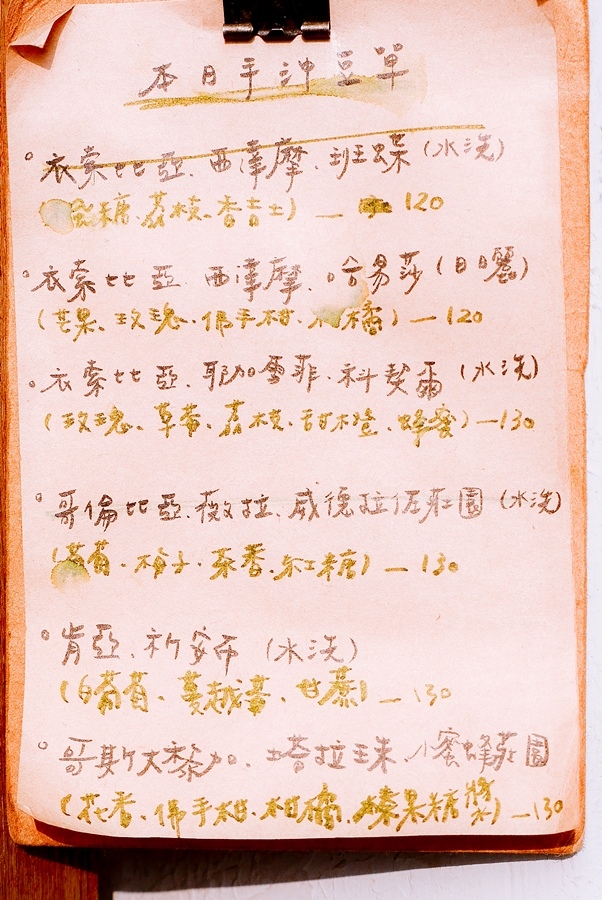 本日手沖豆單
衣索比亞、西達摩、班可蝶(水洗)
糖、荔枝、香吉士) — 120
衣索比亞、西達摩、哈易莎(日曬)
(芒果、玫瑰、佛手柑、柑橘) — 120
衣索比亞、耶加雪菲、科契爾(水洗)
(玫瑰、草莓、荔枝、甜橙、蜂蜜) — 130
哥倫比亞、薇拉、威德拉佐莊園(水洗)
(葡萄、梅子、茶香、紅糖) — 130
肯亞、祈安布(水洗)
(白葡萄、蔓越莓、甘蔗) — 130
哥斯大黎加、塔拉珠、小蜜蜂莊園
(花香、佛手柑、柑橘、榛果糖漿) — 130